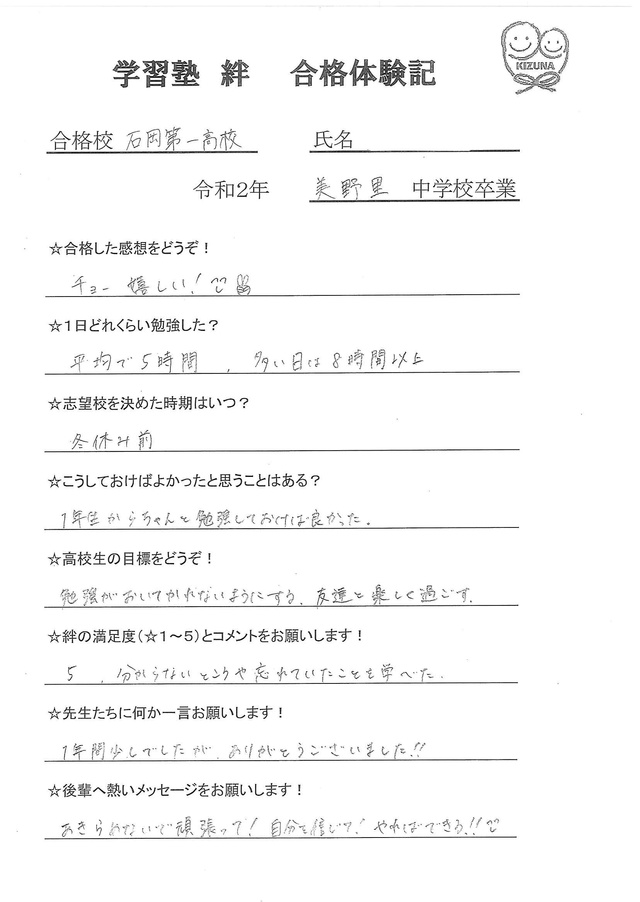 学習塾 絆 合格体験記
KIZUNA
合格校 石岡第一高校 氏名
令和2年 美野里 中学校卒業
☆合格した感想をどうぞ！
チョー 嬉しい！
☆1日どれくらい勉強した？
平均で5時間 、多い日は8時間以上
☆志望校を決めた時期はいつ？
冬休み前
☆こうしておけばよかったと思うことはある？
1年生からちゃんと勉強しておけば良かった。
☆高校生の目標をどうぞ！
勉強がおいてかれないようにする。友達と楽しく過ごす。
☆絆の満足度（☆1～5）とコメントをお願いします！
5 、分からないところや忘れていたことも学べた。
☆先生たちに何か一言お願いします！
1年間少しでしたが、ありがとうございました!!
☆後輩へ熱いメッセージをお願いします！
あきらめないで頑張って！自分を信じて！やればできる!!